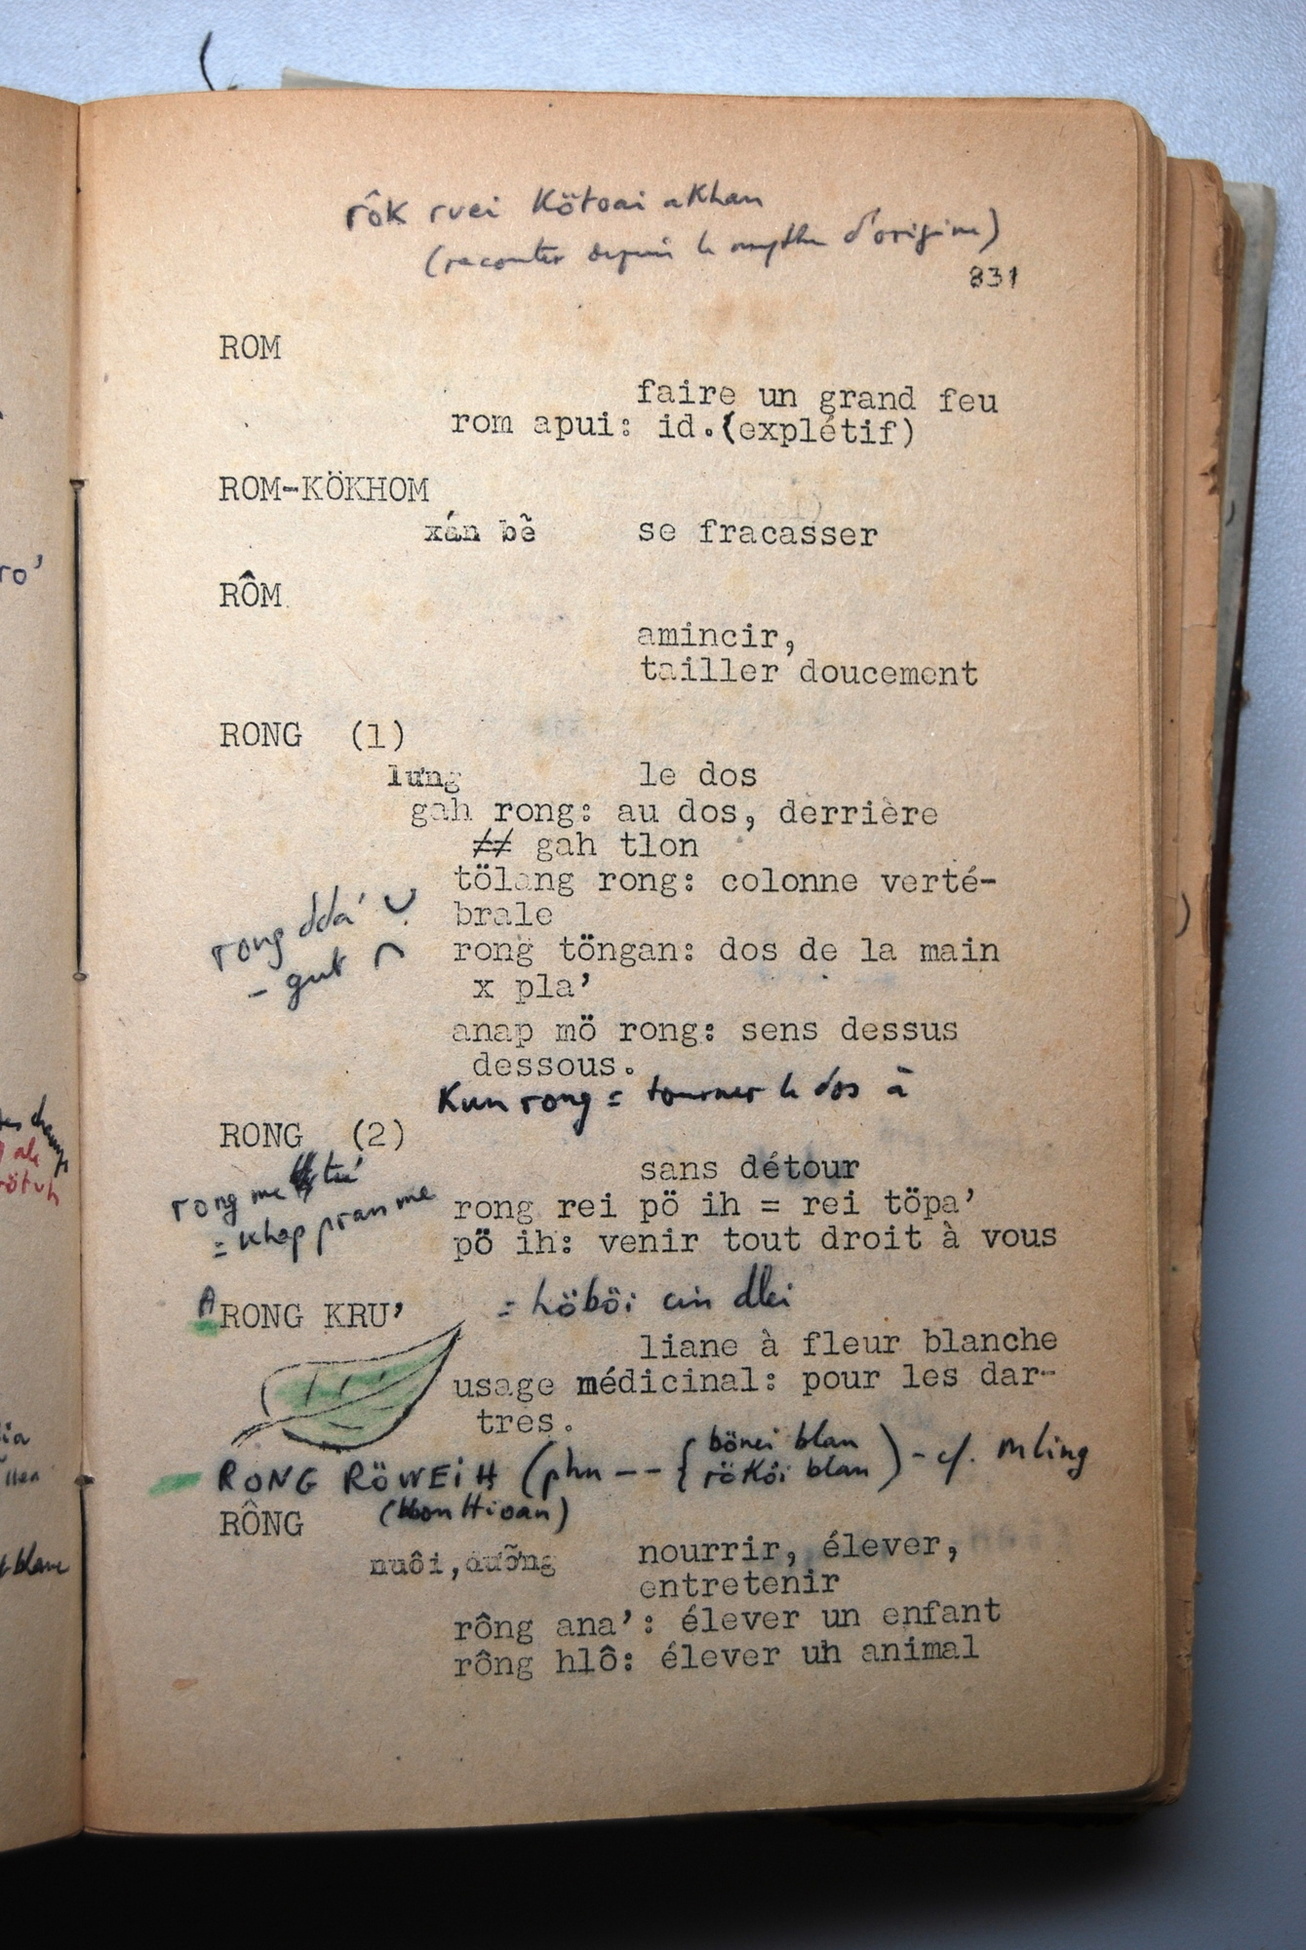 rôk rvei Kötoai akhan
(raconter depuis le mythe d'origine)
831
ROM
faire un grand feu
rom apui: id.(explétif)
ROM-KÖKHOM
xán bẽ se fracasser
RÔM
amincir,
tailler doucement
RONG (1)
lưng le dos
gah rong: au dos, derrière
≠≠ gah tlon
tölang rong: colonne verté-
brale
rong dda'
rong töngan: dos de la main
- gut
x pla'
anap mö rong: sens dessus
dessous.
Kun rong = tourner le dos à
RONG (2)
sans détour
rong me
rong rei pö ih = rei töpa'
= khap pran me
pö ih: venir tout droit à vous
ARONG KRU' = höböi cin dlei
liane à fleur blanche
usage médicinal: pour les dar-
tres.
RONG RÖWEIH (phun -- { bönei blan
rökôi blan ) - cf. mling
RÔNG (bbon Hioan)
nuôi, dưỡng nourrir, élever,
entretenir
rông ana': élever un enfant
rông hlô: élever uh animal
ro'